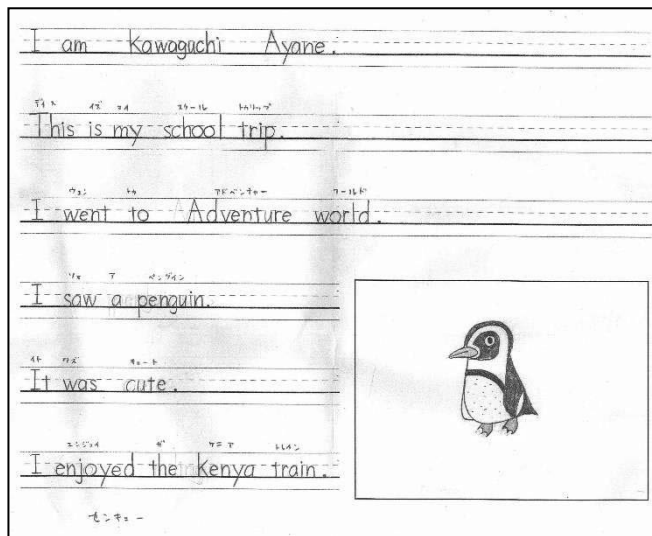 I am Kawaguchi Ayane.
ディス イズ マイ スクール トゥリップ
This is my school trip.
ウェン トゥ アドベンチャー ワールド
I went to Adventure world.
ソォ ア ペングイン
I saw a penguin.
イト ワズ キュート
It was cute.
エンジョイ ザ ケニア トレイン
I enjoyed the Kenya train.
センキュー